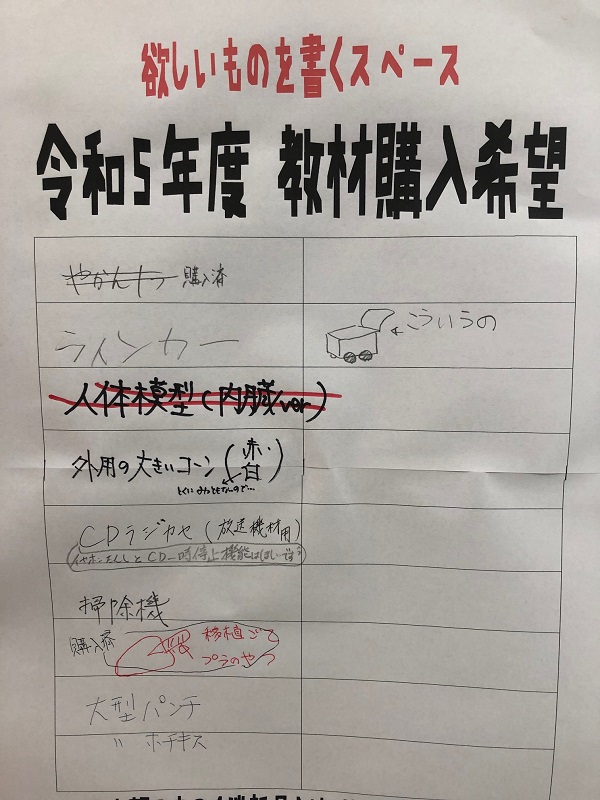 欲しいものを書くスペース
令和5年度 教材購入希望
やかん 購入済
ラインカー
こういうの
人体模型(内臓ver)
外用の大きいコーン(赤・白)
CDラジカセ(放送機材用)
CD一時停止機能はほしいです
掃除機
購入済
移植ごて
プラのやつ
大型パンチ
〃 ホチキス